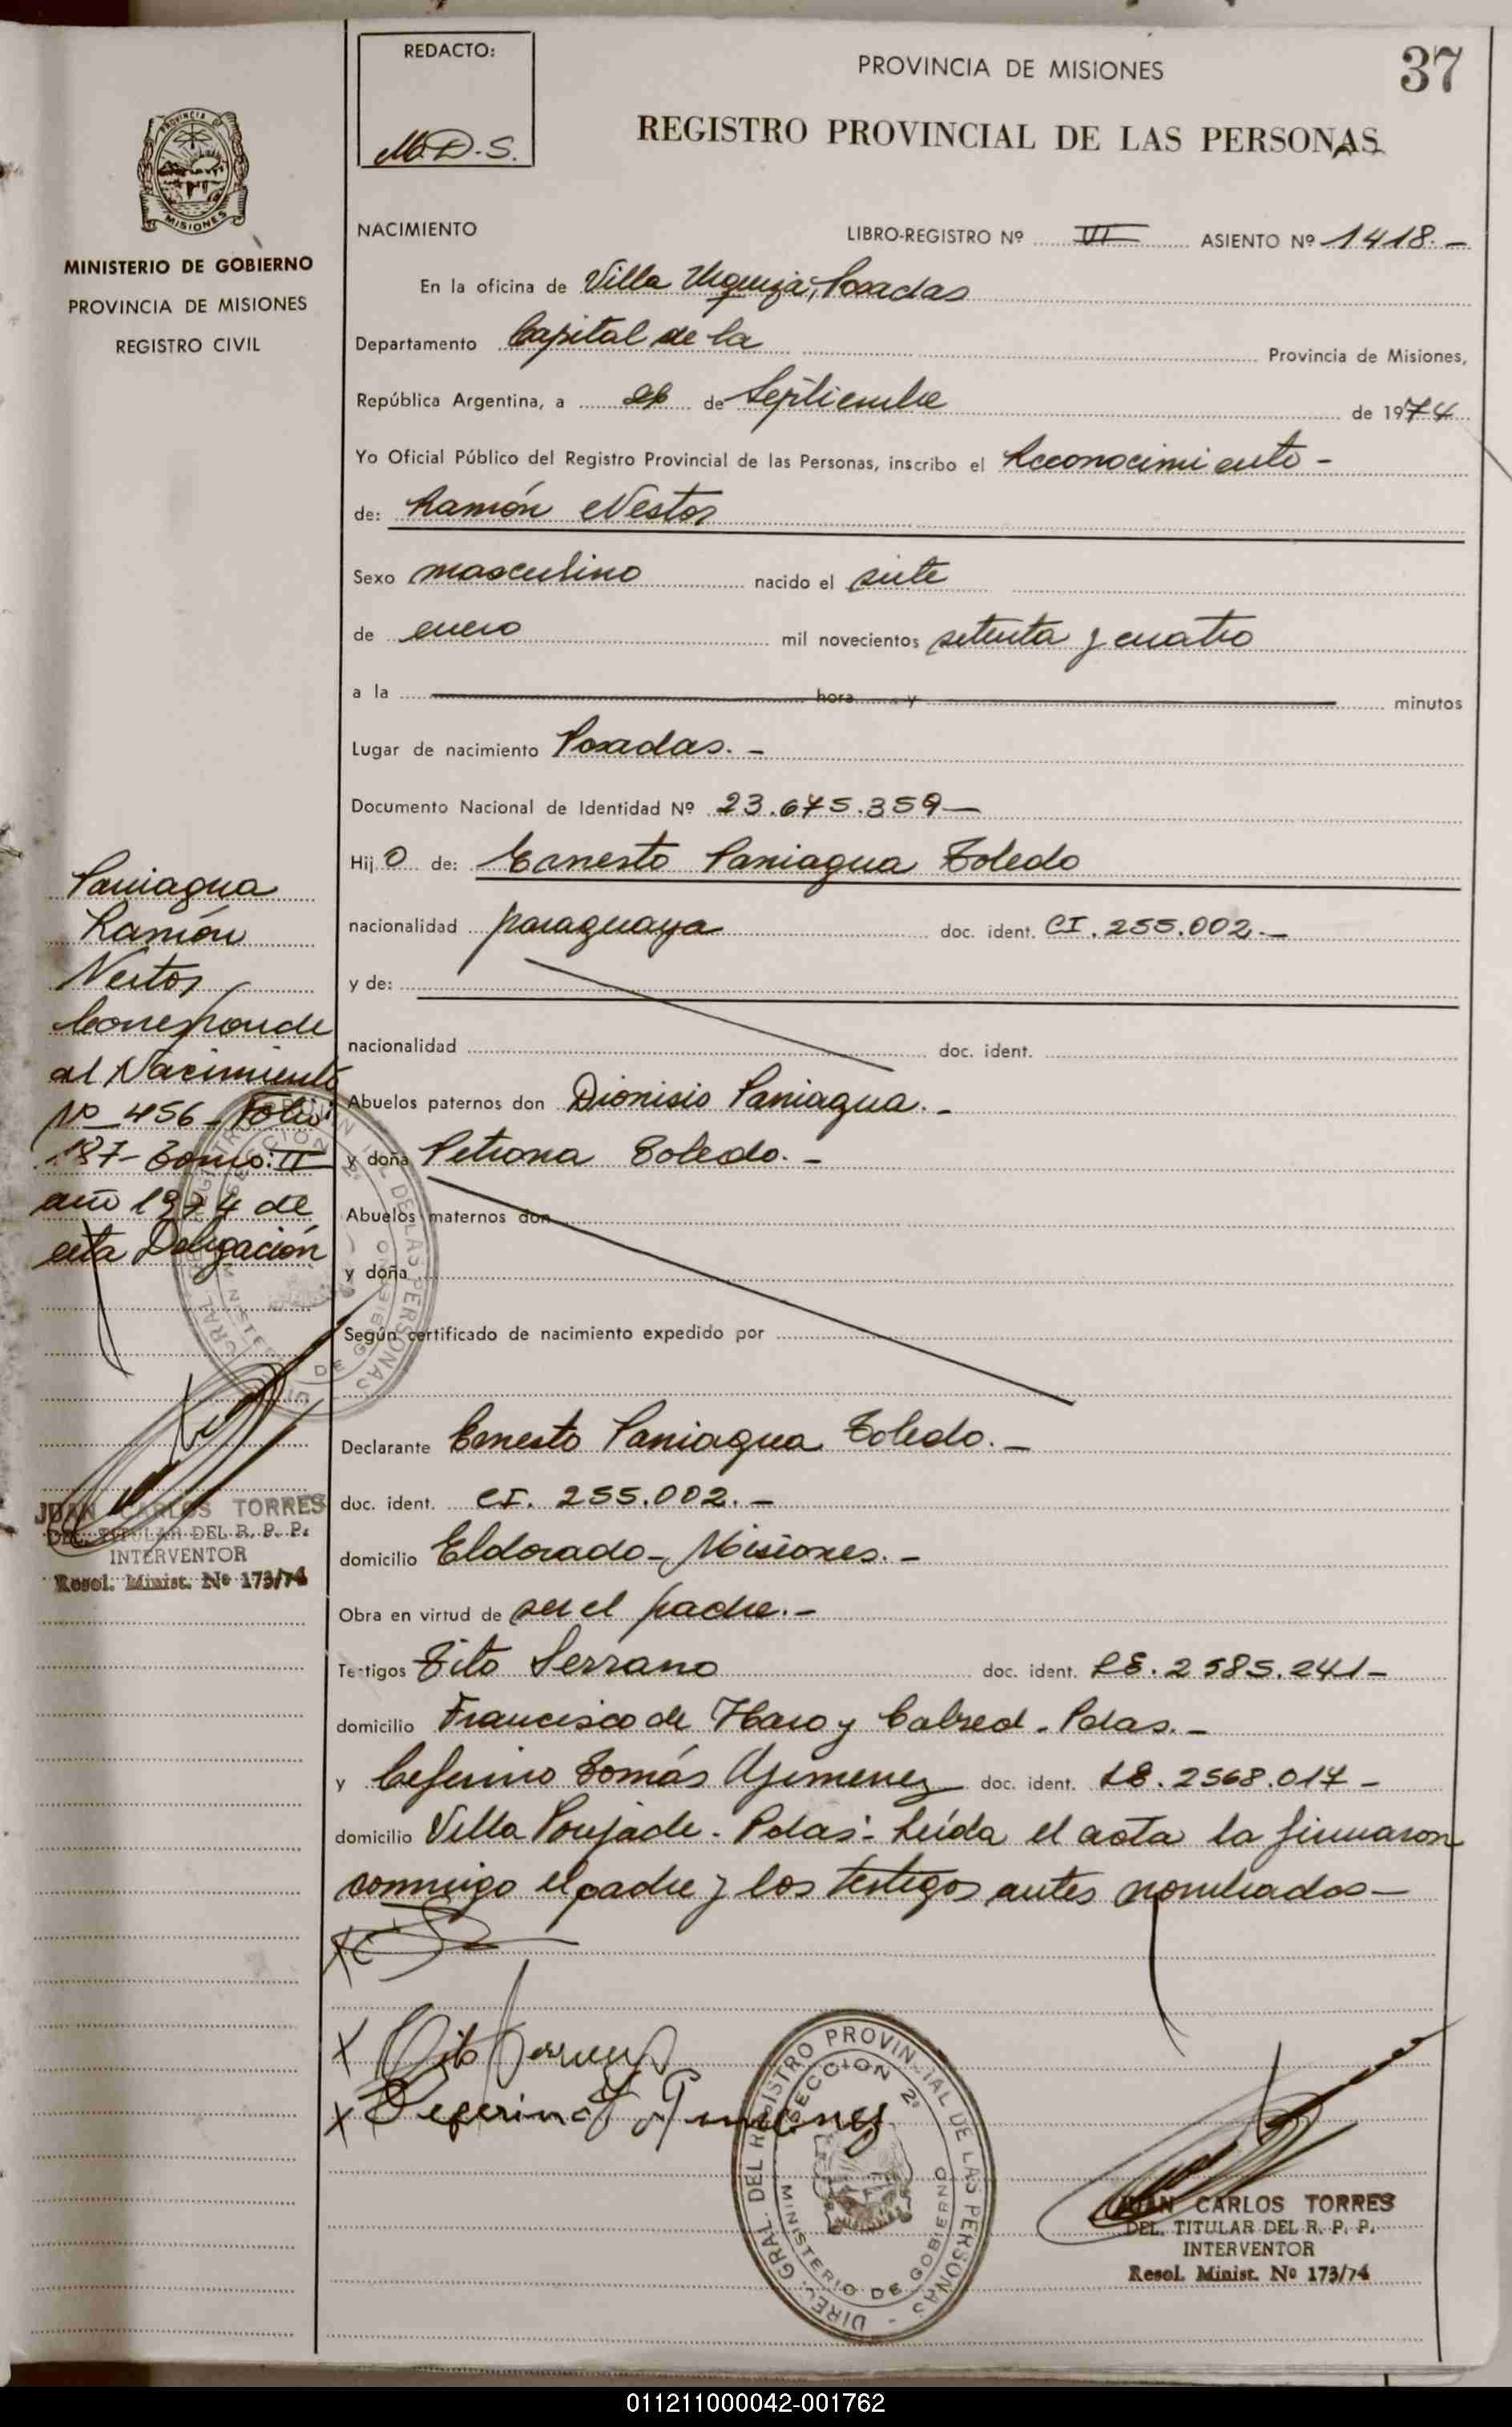 REDACTO:
M.D.S.
PROVINCIA DE MISIONES
37
REGISTRO PROVINCIAL DE LAS PERSONAS
PROVINCIA DE MISIONES
MINISTERIO DE GOBIERNO
PROVINCIA DE MISIONES
REGISTRO CIVIL
NACIMIENTO LIBRO-REGISTRO Nº VI ASIENTO Nº 1418.-
En la oficina de Villa Urquiza, Posadas
Departamento Capital de la Provincia de Misiones,
República Argentina, a de Septiembre de 1974
Yo Oficial Público del Registro Provincial de las Personas, inscribo el Reconocimiento -
de: Ramón Nestor
Sexo masculino nacido el siete
de enero mil novecientos setenta y cuatro
a la hora y minutos
Lugar de nacimiento Posadas. -
Documento Nacional de Identidad Nº 23.675.359-
Hij o de: Ernesto Paniagua Toledo
nacionalidad paraguaya doc. ident. CI. 255.002.-
y de:
nacionalidad doc. ident.
Abuelos paternos don Dionisio Paniagua. -
y doña Petrona Toledo. -
Abuelos maternos don
y doña
Según certificado de nacimiento expedido por
Declarante Ernesto Paniagua Toledo. -
doc. ident. CI. 255.002. -
domicilio Eldorado - Misiones. -
Obra en virtud de ser el padre. -
Testigos Tito Serrano doc. ident. LE. 2585.241-
domicilio Francisco de Haro y Cabred - Pdas. -
y Ceferino Tomás Gimenez doc. ident. LE. 2568.017 -
domicilio Villa Poujade - Pdas.- Leída el acta la firmaron
conmigo el padre y los testigos antes nombrados -
Paniagua
Ramón
Nestor
Corresponde
al Nacimiento
Nº 456 - Folio
187 - Tomo: II
año 1974 de
esta Delegación
JUAN CARLOS TORRES
DEL. TITULAR DEL R. P. P.
INTERVENTOR
Resol. Minist. Nº 173/74
X
X Tito Serrano
X Ceferino T Gimenez
DIREC. GRAL. DEL REGISTRO PROVINCIAL DE LAS PERSONAS
SECCION 2ª
MINISTERIO DE GOBIERNO
JUAN CARLOS TORRES
DEL. TITULAR DEL R. P. P.
INTERVENTOR
Resol. Minist. Nº 173/74
011211000042-001762